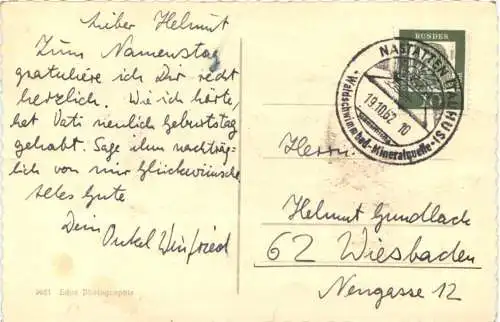 Lieber Helmut
Zum Namenstag
gratuliere ich Dir recht
herzlich. Wie ich hörte,
hat Vati neulich Geburtstag
gehabt. Sage ihm nachträg-
lich von mir Glückwünsche
Alles Gute
Dein Onkel Winfried
9651 Echte Photographie
BUNDES
NASTÄTTEN (TAUNUS)
19.10.62 10
"Waldschwimmbad-Mineralquelle"
Herrn
Helmut Gundlach
62 Wiesbaden
Neugasse 12